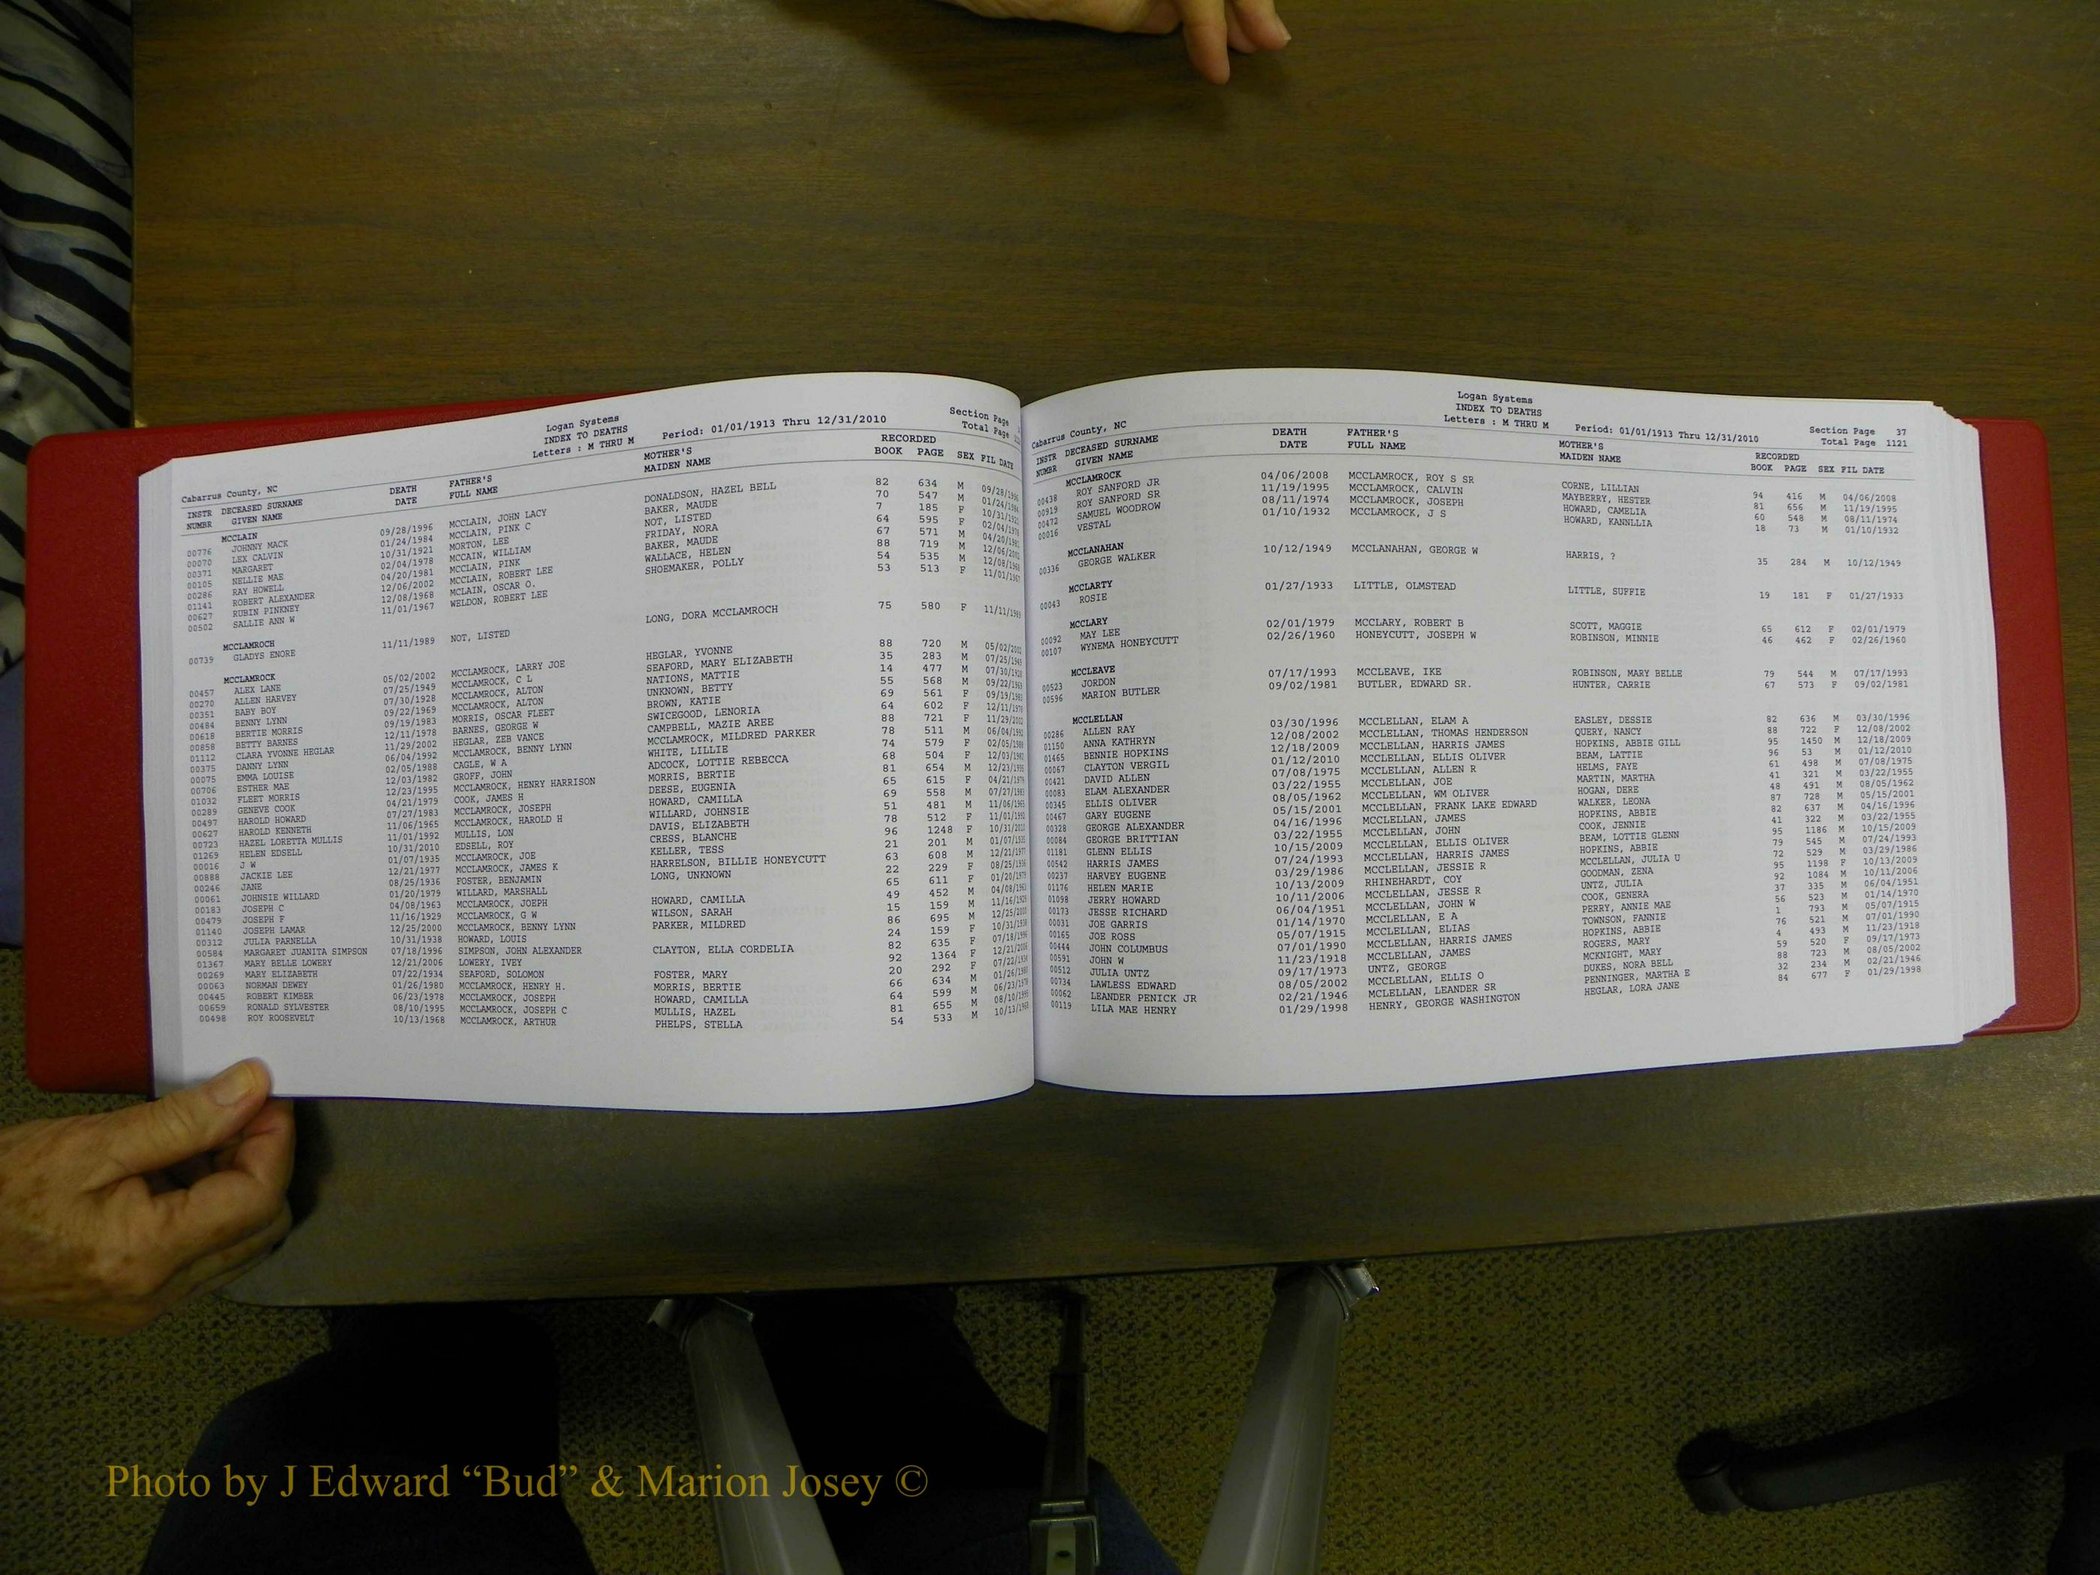 Logan Systems
INDEX TO DEATHS
Letters : M THRU M
Period: 01/01/1913 Thru 12/31/2010
Section Page
Total Page
Cabarrus County, NC
INSTR DECEASED SURNAME DEATH FATHER'S MOTHER'S RECORDED
NUMBR GIVEN NAME DATE FULL NAME MAIDEN NAME BOOK PAGE SEX FIL DATE
MCCLAIN
00776 JOHNNY MACK 09/28/1996 MCCLAIN, JOHN LACY DONALDSON, HAZEL BELL 82 634 M 09/28/1996
00070 LEX CALVIN 01/24/1984 MCCLAIN, PINK C BAKER, MAUDE 70 547 M 01/24/1984
00371 MARGARET 10/31/1921 MORTON, LEE NOT, LISTED 7 185 F 10/31/1921
00105 NELLIE MAE 02/04/1978 MCCAIN, WILLIAM FRIDAY, NORA 64 595 F 02/04/1978
00286 RAY HOWELL 04/20/1981 MCCLAIN, PINK BAKER, MAUDE 67 571 M 04/20/1981
01141 ROBERT ALEXANDER 12/06/2002 MCCLAIN, ROBERT LEE WALLACE, HELEN 88 719 M 12/06/2002
00627 RUBIN PINKNEY 12/08/1968 MCLAIN, OSCAR O. SHOEMAKER, POLLY 54 535 M 12/08/1968
00502 SALLIE ANN W 11/01/1967 WELDON, ROBERT LEE 53 513 F 11/01/1967
MCCLAMROCH
00739 GLADYS ENORE 11/11/1989 NOT, LISTED LONG, DORA MCCLAMROCH 75 580 F 11/11/1989
MCCLAMROCK
00457 ALEX LANE 05/02/2002 MCCLAMROCK, LARRY JOE HEGLAR, YVONNE 88 720 M 05/02/2002
00270 ALLEN HARVEY 07/25/1949 MCCLAMROCK, C L SEAFORD, MARY ELIZABETH 35 283 M 07/25/1949
00351 BABY BOY 07/30/1928 MCCLAMROCK, ALTON NATIONS, MATTIE 14 477 M 07/30/1928
00484 BENNY LYNN 09/22/1969 MCCLAMROCK, ALTON UNKNOWN, BETTY 55 568 M 09/22/1969
00618 BERTIE MORRIS 09/19/1983 MORRIS, OSCAR FLEET BROWN, KATIE 69 561 F 09/19/1983
00858 BETTY BARNES 12/11/1978 BARNES, GEORGE W SWICEGOOD, LENORIA 64 602 F 12/11/1978
01112 CLARA YVONNE HEGLAR 11/29/2002 HEGLAR, ZEB VANCE CAMPBELL, MAZIE AREE 88 721 F 11/29/2002
00375 DANNY LYNN 06/04/1992 MCCLAMROCK, BENNY LYNN MCCLAMROCK, MILDRED PARKER 78 511 M 06/04/1992
00075 EMMA LOUISE 02/05/1988 CAGLE, W A WHITE, LILLIE 74 579 F 02/05/1988
00706 ESTHER MAE 12/03/1982 GROFF, JOHN ADCOCK, LOTTIE REBECCA 68 504 F 12/03/1982
01032 FLEET MORRIS 12/23/1995 MCCLAMROCK, HENRY HARRISON MORRIS, BERTIE 81 654 M 12/23/1995
00289 GENEVE COOK 04/21/1979 COOK, JAMES H DEESE, EUGENIA 65 615 F 04/21/1979
00497 HAROLD HOWARD 07/27/1983 MCCLAMROCK, JOSEPH HOWARD, CAMILLA 69 558 M 07/27/1983
00627 HAROLD KENNETH 11/06/1965 MCCLAMROCK, HAROLD H WILLARD, JOHNSIE 51 481 M 11/06/1965
00723 HAZEL LORETTA MULLIS 11/01/1992 MULLIS, LON DAVIS, ELIZABETH 78 512 F 11/01/1992
01269 HELEN EDSELL 10/31/2010 EDSELL, ROY CRESS, BLANCHE 96 1248 F 10/31/2010
00016 J W 01/07/1935 MCCLAMROCK, JOE KELLER, TESS 21 201 M 01/07/1935
00888 JACKIE LEE 12/21/1977 MCCLAMROCK, JAMES K HARRELSON, BILLIE HONEYCUTT 63 608 M 12/21/1977
00246 JANE 08/25/1936 FOSTER, BENJAMIN LONG, UNKNOWN 22 229 F 08/25/1936
00061 JOHNSIE WILLARD 01/20/1979 WILLARD, MARSHALL 65 611 F 01/20/1979
00183 JOSEPH C 04/08/1963 MCCLAMROCK, JOEPH HOWARD, CAMILLA 49 452 M 04/08/1963
00479 JOSEPH F 11/16/1929 MCCLAMROCK, G W WILSON, SARAH 15 159 M 11/16/1929
01140 JOSEPH LAMAR 12/25/2000 MCCLAMROCK, BENNY LYNN PARKER, MILDRED 86 695 M 12/25/2000
00312 JULIA PARNELLA 10/31/1938 HOWARD, LOUIS 24 159 F 10/31/1938
00584 MARGARET JUANITA SIMPSON 07/18/1996 SIMPSON, JOHN ALEXANDER CLAYTON, ELLA CORDELIA 82 635 F 07/18/1996
01367 MARY BELLE LOWERY 12/21/2006 LOWERY, IVEY 92 1364 F 12/21/2006
00269 MARY ELIZABETH 07/22/1934 SEAFORD, SOLOMON FOSTER, MARY 20 292 F 07/22/1934
00063 NORMAN DEWEY 01/26/1980 MCCLAMROCK, HENRY H. MORRIS, BERTIE 66 634 M 01/26/1980
00445 ROBERT KIMBER 06/23/1978 MCCLAMROCK, JOSEPH HOWARD, CAMILLA 64 599 M 06/23/1978
00659 RONALD SYLVESTER 08/10/1995 MCCLAMROCK, JOSEPH C MULLIS, HAZEL 81 655 M 08/10/1995
00498 ROY ROOSEVELT 10/13/1968 MCCLAMROCK, ARTHUR PHELPS, STELLA 54 533 M 10/13/1968
Logan Systems
INDEX TO DEATHS
Letters : M THRU M
Period: 01/01/1913 Thru 12/31/2010
Section Page 37
Total Page 1121
Cabarrus County, NC
INSTR DECEASED SURNAME DEATH FATHER'S MOTHER'S RECORDED
NUMBR GIVEN NAME DATE FULL NAME MAIDEN NAME BOOK PAGE SEX FIL DATE
MCCLAMROCK
00438 ROY SANFORD JR 04/06/2008 MCCLAMROCK, ROY S SR CORNE, LILLIAN 94 416 M 04/06/2008
00919 ROY SANFORD SR 11/19/1995 MCCLAMROCK, CALVIN MAYBERRY, HESTER 81 656 M 11/19/1995
00472 SAMUEL WOODROW 08/11/1974 MCCLAMROCK, JOSEPH HOWARD, CAMELIA 60 548 M 08/11/1974
00016 VESTAL 01/10/1932 MCCLAMROCK, J S HOWARD, KANNLLIA 18 73 M 01/10/1932
MCCLANAHAN
00336 GEORGE WALKER 10/12/1949 MCCLANAHAN, GEORGE W HARRIS, ? 35 284 M 10/12/1949
MCCLARTY
00043 ROSIE 01/27/1933 LITTLE, OLMSTEAD LITTLE, SUFFIE 19 181 F 01/27/1933
MCCLARY
00092 MAY LEE 02/01/1979 MCCLARY, ROBERT B SCOTT, MAGGIE 65 612 F 02/01/1979
00107 WYNEMA HONEYCUTT 02/26/1960 HONEYCUTT, JOSEPH W ROBINSON, MINNIE 46 462 F 02/26/1960
MCCLEAVE
00523 JORDON 07/17/1993 MCCLEAVE, IKE ROBINSON, MARY BELLE 79 544 M 07/17/1993
00596 MARION BUTLER 09/02/1981 BUTLER, EDWARD SR. HUNTER, CARRIE 67 573 F 09/02/1981
MCCLELLAN
00286 ALLEN RAY 03/30/1996 MCCLELLAN, ELAM A EASLEY, DESSIE 82 636 M 03/30/1996
01150 ANNA KATHRYN 12/08/2002 MCCLELLAN, THOMAS HENDERSON QUERY, NANCY 88 722 F 12/08/2002
01465 BENNIE HOPKINS 12/18/2009 MCCLELLAN, HARRIS JAMES HOPKINS, ABBIE GILL 95 1450 M 12/18/2009
00067 CLAYTON VERGIL 01/12/2010 MCCLELLAN, ELLIS OLIVER BEAM, LATTIE 96 53 M 01/12/2010
00421 DAVID ALLEN 07/08/1975 MCCLELLAN, ALLEN R HELMS, FAYE 61 498 M 07/08/1975
00083 ELAM ALEXANDER 03/22/1955 MCCLELLAN, JOE MARTIN, MARTHA 41 321 M 03/22/1955
00345 ELLIS OLIVER 08/05/1962 MCCLELLAN, WM OLIVER HOGAN, DERE 48 491 M 08/05/1962
00467 GARY EUGENE 05/15/2001 MCCLELLAN, FRANK LAKE EDWARD WALKER, LEONA 87 728 M 05/15/2001
00328 GEORGE ALEXANDER 04/16/1996 MCCLELLAN, JAMES HOPKINS, ABBIE 82 637 M 04/16/1996
00084 GEORGE BRITTIAN 03/22/1955 MCCLELLAN, JOHN COOK, JENNIE 41 322 M 03/22/1955
01181 GLENN ELLIS 10/15/2009 MCCLELLAN, ELLIS OLIVER BEAM, LOTTIE GLENN 95 1186 M 10/15/2009
00542 HARRIS JAMES 07/24/1993 MCCLELLAN, HARRIS JAMES HOPKINS, ABBIE 79 545 M 07/24/1993
00237 HARVEY EUGENE 03/29/1986 MCCLELLAN, JESSIE R MCCLELLAN, JULIA U 72 529 M 03/29/1986
01176 HELEN MARIE 10/13/2009 RHINEHARDT, COY GOODMAN, ZENA 95 1198 F 10/13/2009
01098 JERRY HOWARD 10/11/2006 MCCLELLAN, JESSE R UNTZ, JULIA 92 1084 M 10/11/2006
00173 JESSE RICHARD 06/04/1951 MCCLELLAN, JOHN W COOK, GENERA 37 335 M 06/04/1951
00031 JOE GARRIS 01/14/1970 MCCLELLAN, E A PERRY, ANNIE MAE 56 523 M 01/14/1970
00165 JOE ROSS 05/07/1915 MCCLELLAN, ELIAS TOWNSON, FANNIE 1 793 M 05/07/1915
00444 JOHN COLUMBUS 07/01/1990 MCCLELLAN, HARRIS JAMES HOPKINS, ABBIE 76 521 M 07/01/1990
00591 JOHN W 11/23/1918 MCCLELLAN, JAMES ROGERS, MARY 4 493 M 11/23/1918
00512 JULIA UNTZ 09/17/1973 UNTZ, GEORGE MCKNIGHT, MARY 59 520 F 09/17/1973
00734 LAWLESS EDWARD 08/05/2002 MCCLELLAN, ELLIS O DUKES, NORA BELL 88 723 M 08/05/2002
00062 LEANDER PENICK JR 02/21/1946 MCLELLAN, LEANDER SR PENNINGER, MARTHA E 32 234 M 02/21/1946
00119 LILA MAE HENRY 01/29/1998 HENRY, GEORGE WASHINGTON HEGLAR, LORA JANE 84 677 F 01/29/1998
Photo by J Edward “Bud” & Marion Josey ©